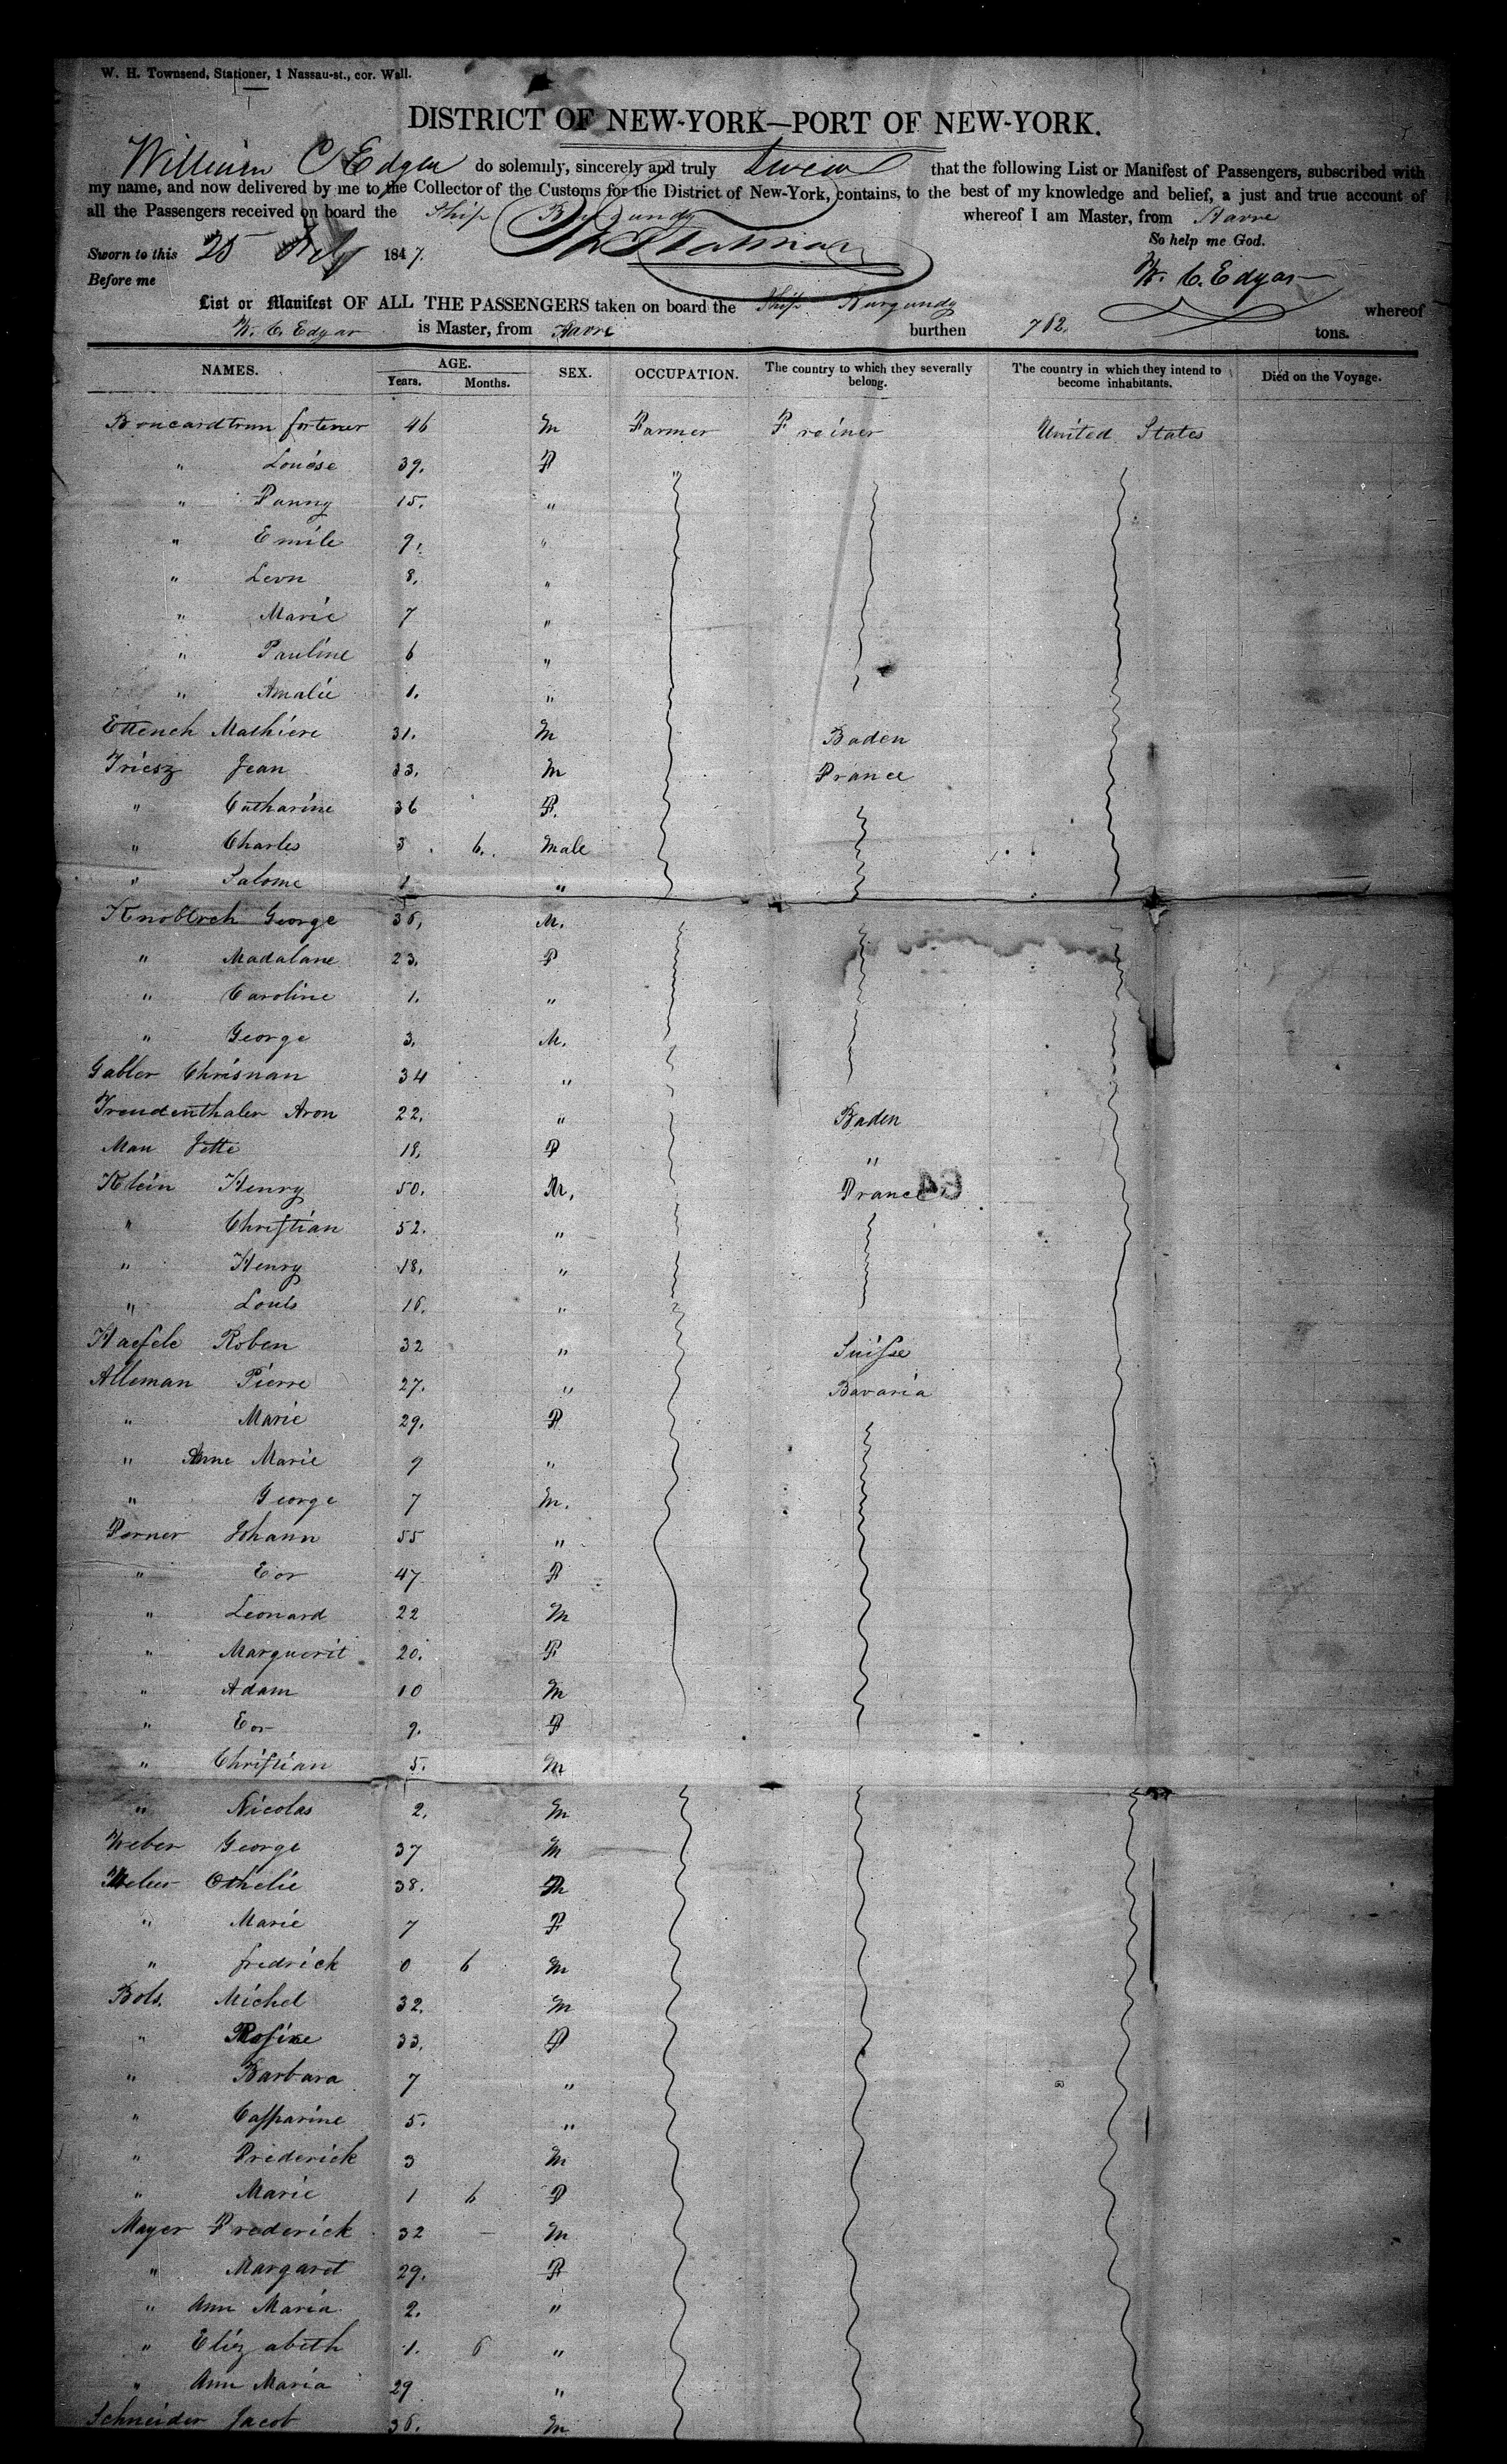 W. H. Townsend, Stationer, 1 Nassau-st., cor. Wall.
DISTRICT OF NEW-YORK—PORT OF NEW-YORK.
William C Edgar do solemnly, sincerely and truly swear that the following List or Manifest of Passengers, subscribed with
my name, and now delivered by me to the Collector of the Customs for the District of New-York, contains, to the best of my knowledge and belief, a just and true account of
all the Passengers received on board the Ship Burgundy whereof I am Master, from Havre
So help me God.
Sworn to this 25 1847.
Before me
W. C. Edgar
List or Manifest OF ALL THE PASSENGERS taken on board the Ship Burgundy whereof
W. C. Edgar is Master, from Havre burthen 762. tons.
NAMES. AGE. SEX. OCCUPATION. The country to which they severally belong. The country in which they intend to become inhabitants. Died on the Voyage.
Years. Months.
46 M Farmer United States
" Louise 39. F "
" Fanny 15. "
" Emile 9. "
" Leon 8. "
" Marie 7 "
" Pauline 6 "
" Amalie 1. "
Ettench Mathiere 31. M Baden
Friesz Jean 33. M France
" Catharine 36 F.
" Charles 3 6. Male
" Salome 1 "
Knobloch George 36, M.
" Madalane 23. F
" Caroline 1. "
" George 3. M.
Gabler Chrisnan 34 "
Freudenthaler Aron 22. " Baden
Man Jette 18, F "
Klein Henry 50. M, France 64
" Christian 52. "
" Henry 18, "
" Louis 16. "
Haefele Roben 32 " Suisse
Alleman Pierre 27. " Bavaria
" Marie 29. F
" Anne Marie 9 "
" George 7 M.
Ferner Johann 55 "
" Eor 47 F
" Leonard 22 M
" Marguerit 20. F
" Adam 10 M
" Eor 9. F
" Christian 5. M
" Nicolas 2. M
Weber George 37 M
Weber Othelie 38.
" Marie 7 F
" fredrick 0 6 M
Bols. Michel 32. M
" Rosine 33. F
" Barbara 7 "
" Casparine 5. "
" Frederick 3 M
" Marie 1 6 F
Mayer Frederick 32 – M
" Margaret 29. F
" Ann Maria 2. "
" Eliezabeth 1. 6 "
" Ann Maria 29 "
Schneider Jacob 36. M